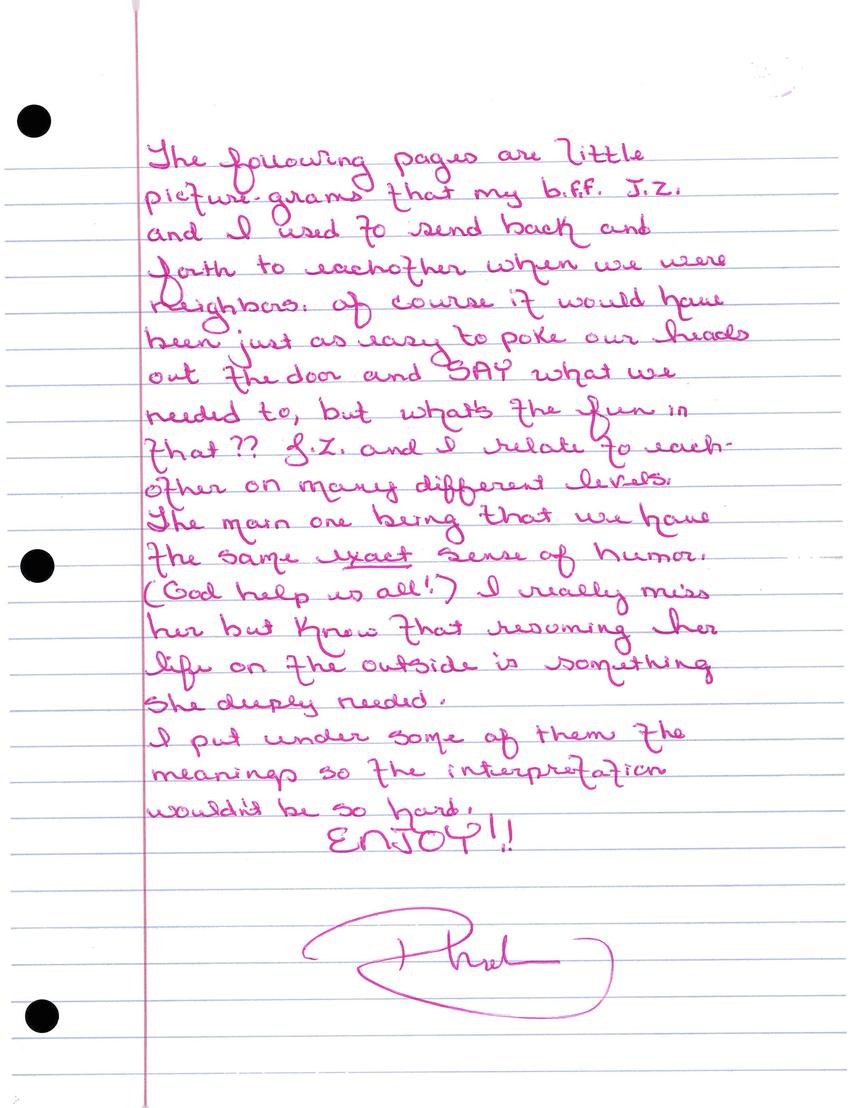 The following pages are little
picture-grams that my b.f.f. J.Z.
and I used to send back and
forth to eachother when we were
neighbors. Of course it would have
been just as easy to poke our heads
out the door and SAY what we
needed to, but what's the fun in
that?? J.Z. and I relate to each-
other on many different levels.
The main one being that we have
the same exact sense of humor.
(God help us all!) I really miss
her but know that resuming her
life on the outside is something
she deeply needed.
I put under some of them the
meanings so the interpretation
wouldn't be so hard.
ENJOY!!